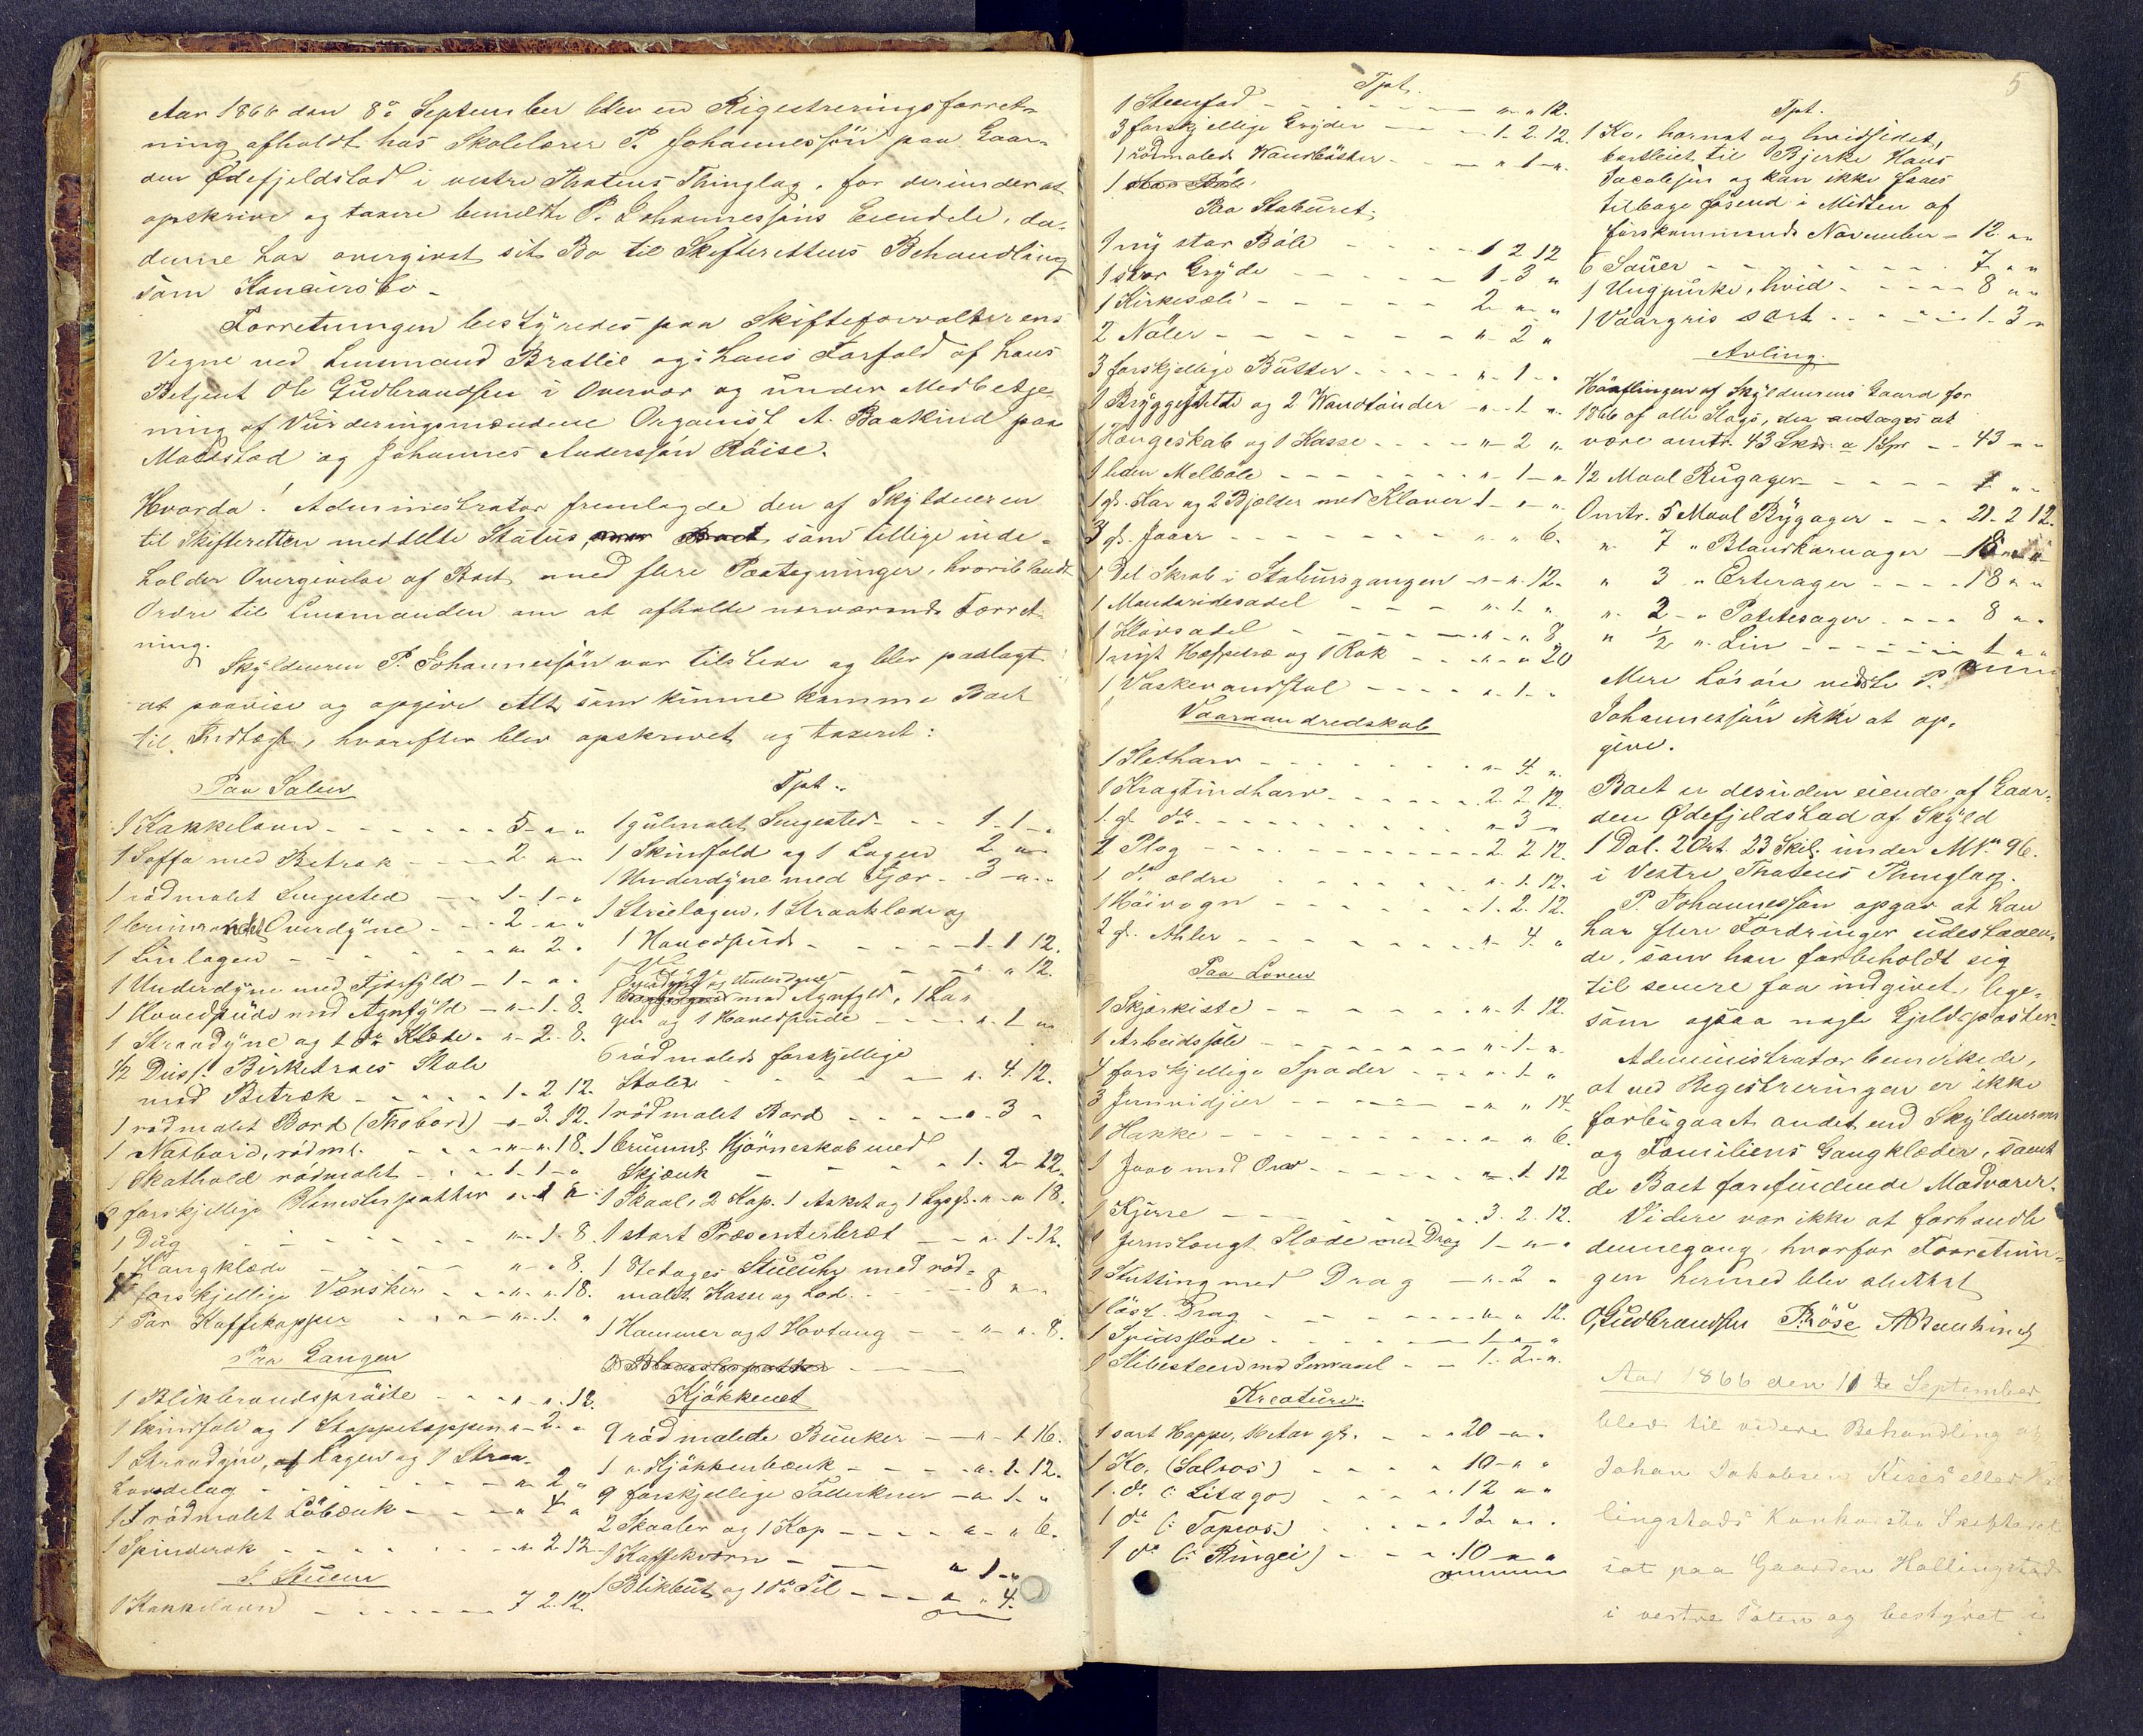 Aar 1866 den 8de September blev en Rigestreringsforret-
ning afholdt hos Skolelærer P. Johannessön paa Gaar-
den Ödefjeldstad i vestre Thotens Thinglag, for derunder at
opskrive og taxere bemeldte P. Johannessöns Eiendele, da
denne har overgivet sit Bo til Skifterettens Behandling
som Koncursbo.
Forretningen bestyredes paa Skifteforvalterens
Vegne ved Lensmand Bratlie og i hans Forfald af hans
Betjent Ole Gudbrandsen i Overvær og under Medbetje-
ning af Vurderingsmændene Organist A. Baukind paa
Madstad og Johannes Anderssön Röise.
Hvorda! Administrator fremlagde den af Skyldneren
til Skifteretten meddelte Status, som tillige inde-
holder Overgivelse af Boet med flere Paategninger, hvoriblandt
Ordre til Lensmanden om at afholde nærværende Forret-
ning.
Skyldneren P. Johannessön var tilstede og blev paalagt
at paavise og opgive Alt som kunne komme Boet
til Indtægt, hvorefter blev opskrevet og taxeret:
Paa Salen
1 Kakkelovn - - - 5 " "
1 Soffa med Betræk - - 2 " "
1 rödmalet Sengested - - 1-1-"
1 Overdyne - - 2 " "
1 Linlagen - - " 2 "
1 Underdyne med Fjærfyld - 1 - " "
1 Hovedpude med Agnfyld - " 1. 8.
1 Straadyne og 1 do Klæde. " 2. 8.
1/2 Dus. Birketræes Stole
med Betræk - - 1- 2 12.
1 rödmalet Bord (Thebord) - " 3. 12.
1 Natbord, rödml. - - " " 18.
1 Skathold rödmalet - - 1-1-"
6 forskjellige Blomsterpotter " 1 "
1 Dug - - " 1. 8.
1 Haangklæde - - " " 8.
4 forskjellige Værsker - - " " 18.
1 Par Kaffekopper - - " 1. "
Paa Gangen
1 Blikbrandspröite - - " " 12.
1 Skindfeld og 1 Stoppetæppe " 2. "
1 Straadyne, 1 Lagen og 1 Straa-
hovedelag - - " 2 "
1 rödmalet Löibænk - - " 4 "
1 Spinderok - - " 2. 12
I Stuen
1 Kakkelovn - - 7 2. 12.
Tpt.
1 gulmalet Sengested - - 1-1-"
1 Skindfeld og 1 Lagen 2 " "
1 Underdyne med Fjær - - 3 - " "
1 Strielagen, 1 Straaklæde og
1 Hovedpude - - 1- 1 12.
- - " " 12.
Overdyne og Underdyne
med Agnfyld, 1 La-
gen og 1 Hovedpude - - " 1 "
6 rödmalede forskjellige
Stoler - - " 4. 12.
1 rödmalet Bord - - " 3 "
1 brunmlt Hjörneskab med
Skjænk - - 1. 2- 12.
1 Skaal, 2 Kop. 1 Asket og 1 Lysest. " " 18.
1 stort Præsenterbræt - - " 1- 12.
1 8tedages Stueuhr med röd-
malet Kasse og Lod - - 8 " "
1 Hammer og 1 Hovtang - - " " 8.
Kjökkenet
9 rödmalede Bunker - - " 1. 16.
1 " Kjökkenbænk - - " 1. 12.
9 forskjellige Tallerkner - " 1. "
2 Skaaler og 1 Kop - - " " 6.
1 Kaffekværn - - " 1 "
1 Blikbut og 1 do Sil - - " " 4.
5
Tpt.
1 Steenfad - - " " 12.
3 forskjellige Gryder - - 1. 2. 12.
1 rödmalede Vandbötter - - " 1 "
1
Paa Staburet.
1 ny stor Böle - - 1 2 12
1 stor Gryde - - 1- 3 "
1 Kirkesæle - - 2 " "
2 Nöler - - " 2 "
3 forskjellige Bütter - - " 1 "
1 Bryggestelte og 2 Vandtönder - " 1 "
1 Hængeskab og 1 Kasse - - " 2 "
1 liden Melböle - - " 1 "
1 gl. Kar og 2 Bjelder med Klaver 1 - " "
3 gl. Jaaer - - " " 6.
1 Del Skrab i Stabursgangen - " " 12.
1 Mandsridesadel - - " 1. "
1 Klövsadel - - " " 8
1 nyt Hespetræ og 1 Rok - - " " 20
1 Vaskevandstol - - " 1. "
Vaaraanredskab
1 Sletharv - - " 4. "
1 Kragtindharv - - 2. 2. 12.
1 gl. do - - " 3 "
1 Plog - - 2. 2 12.
1 do ældre - - " 1. 12.
1 Höivogn - - 1. 2. 12.
2 gl. Ahler - - " 4. "
Paa Loven
1 Skjærkiste - - " 1. 12.
1 Arbeidssæle - - " 1 "
4 forskjellige Spader - - " 1. "
3 Jernvidjier - - " " 14.
1 Hakke - - " " 6.
1 Jaao med Orv - - " 1. 12
1 Kjærre - - 3. 2. 12.
1 Jernslaagt Slæde med Drag 1 - " "
1 Stutting med Drag - " 2 "
1 löst Drag - - " " 12.
1 Spidsslæde - - 1 " "
1 Slibesteen med Jernaxel - - 1. 2. "
Kreature.
1 sort Hoppe, 16 Aar gl. - - 20 " "
1 Ko, (Salros) - - 10 " "
1 do (: Litago) - - 12 " "
1 do (: Topros:) - - 12 " "
1 do (: Ringei) - - 10 " "
Tpt.
1 Ko, hornet og hvidsidet,
bortleiet til Bjerke Hans
Jacobsen og kan ikke faaes
tilbage förend i Midten af
förskommende November - 12. " "
6 Sauer - - 7 " "
1 Ungpurke, hvid - - 8 " "
1 Vaargris sort - - 1. 3 "
Avling.
Höavlingen af Skyldnerens Gaard for
1866 af alle Slags, der antages at
være omtr. 43 Skr: a 1 Spr - - 43 " "
1/2 Maal Rugager - - " "
Omtr. 5 Maal Bygager - - 21- 2 12.
" 7 " Blandkornager - 18 " "
" 3 " Erterager - - 18 " "
" 2 " Potetesager - - 8 " "
" 1/2 " Lin - - 1 " "
Mere Lösöre vidste P.
Johannessön ikke at op-
give.
Boet er desuden eiende af Gaar-
den Ödefjeldstad af Skyld
1 Dal. 2 Ort. 23 Skil. under M No 96.
i Vestre Thotens Thinglag.
P. Johannessön opgav at han
har flere Fordringer udestaaen-
de, som han forbeholdt sig
til senere faa indgivet, lige-
som ogsaa nogle Gjeldsposter.
Administrator bemerkede,
at ved Regestreringen er ikke
forbigaaet andet end Skyldnerens
og Familiens Gangklæder, samt
de Boet forefindende Madvarer.
Videre var ikke at forhandle
dennegang, hvorfor Forretnin-
gen hermed blev sluttet
O. Gudbrandsen Röse A Baukind
Aar 1866 den 11te September
blev til videre Behandling af
Johan Jakobsen Kises eller
lingstads Konkursbo Skifteret
sat paa Gaarden Hallingstad
i vestre Toten og bestyret i